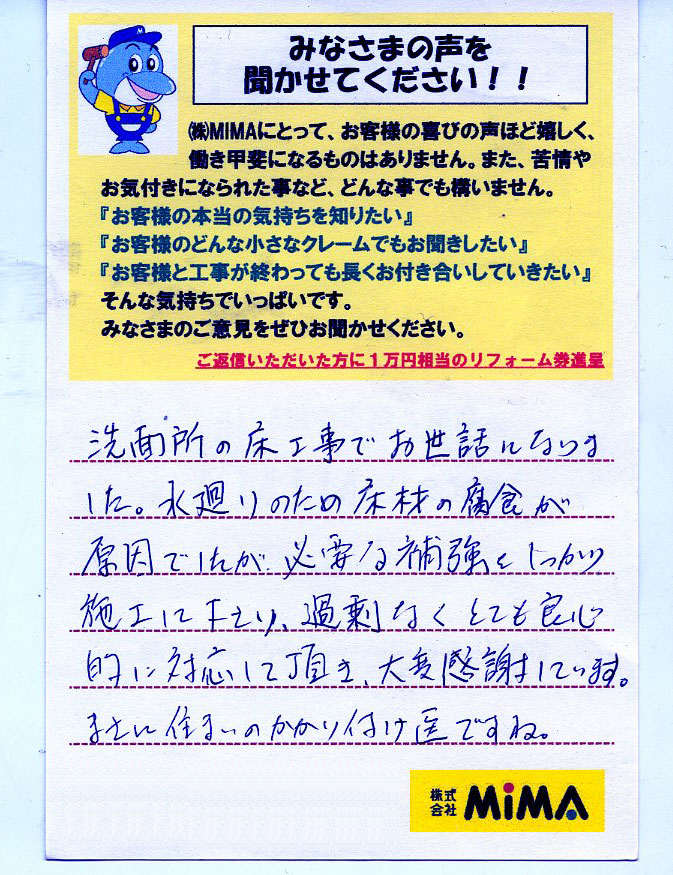 みなさまの声を
聞かせてください！！
㈱MIMAにとって、お客様の喜びの声ほど嬉しく、
働き甲斐になるものはありません。また、苦情や
お気付きになられた事など、どんな事でも構いません。
『お客様の本当の気持ちを知りたい』
『お客様のどんな小さなクレームでもお聞きしたい』
『お客様と工事が終わっても長くお付き合いしていきたい』
そんな気持ちでいっぱいです。
みなさまのご意見をぜひお聞かせください。
ご返信いただいた方に１万円相当のリフォーム券進呈
洗面所の床工事でお世話になりま
した。水廻りのため床材の腐食が
原因でしたが、必要な補強をしっかり
施工して下さり、過剰なくとても良心
的に対応して頂き、大変感謝しています。
まさに住まいのかかり付け医ですね。
株式会社 MiMA